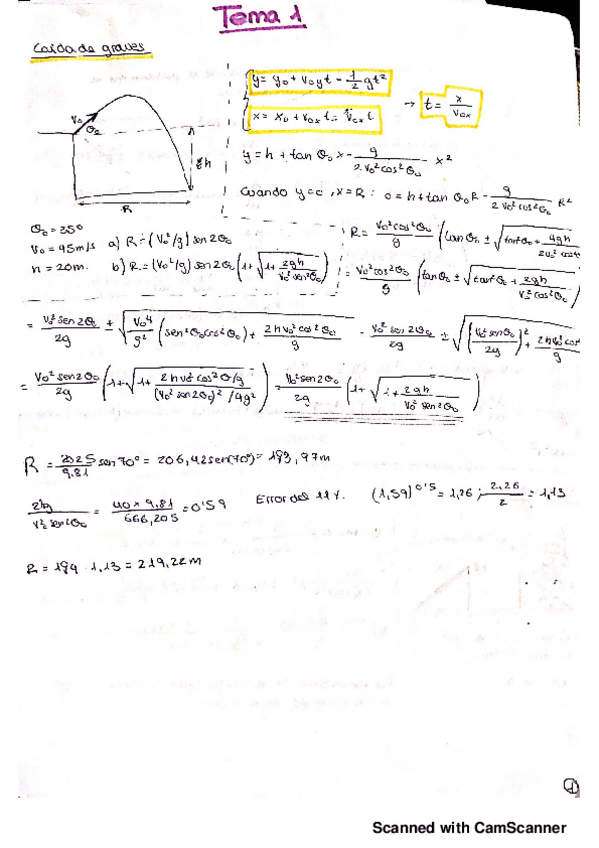 Tema 1
Caída de graves
y = y₀ + v₀y t - 1/2 gt²
x = x₀ + v₀x t = v₀x t → t = x / v₀x
v₀
θ₀
h
R
y = h + tan θ₀ x - g / 2 v₀² cos² θ₀ x²
Cuando y = 0, x = R : 0 = h + tan θ₀ R - g / 2 v₀² cos² θ₀ R²
θ₀ = 35º
v₀ = 45 m/s a) R = (v₀²/g) sen 2θ₀
h = 20 m. b) R = (v₀²/g) sen 2θ₀ (1 + √(1 + 2gh / v₀² sen² θ₀))
R = v₀² cos² θ₀ / g (tan θ₀ ± √(tan² θ₀ + 4gh /
= v₀² cos² θ₀ / g (tan θ₀ ± √(tan² θ₀ + 2gh / v₀² cos² θ₀))
= v₀² sen 2θ₀ / 2g ± √(v₀⁴ / g² (sen² θ₀ cos² θ₀) + 2h v₀² cos² θ₀ / g) = v₀² sen 2θ₀ / 2g ± √((v₀² sen θ₀ / 2g)² + 2h v₀² cos² / g
= v₀² sen 2θ₀ / 2g (1 + √(1 + 2h v₀² cos² θ/g / (v₀² sen 2θ₀)² / 4g²)) = v₀² sen 2θ₀ / 2g (1 + √(1 + 2gh / v₀² sen² θ₀))
R = 2025 / 9,81 sen 70º = 206,42 sen(70º) = 193,97 m
= 40 × 9,81 / 666,205 = 0'59 Error del 11%. (1,59)^0'5 = 1,26 ; 2,26 / 2 = 1,13
R = 194 · 1,13 = 219,22 m
1
Scanned with CamScanner